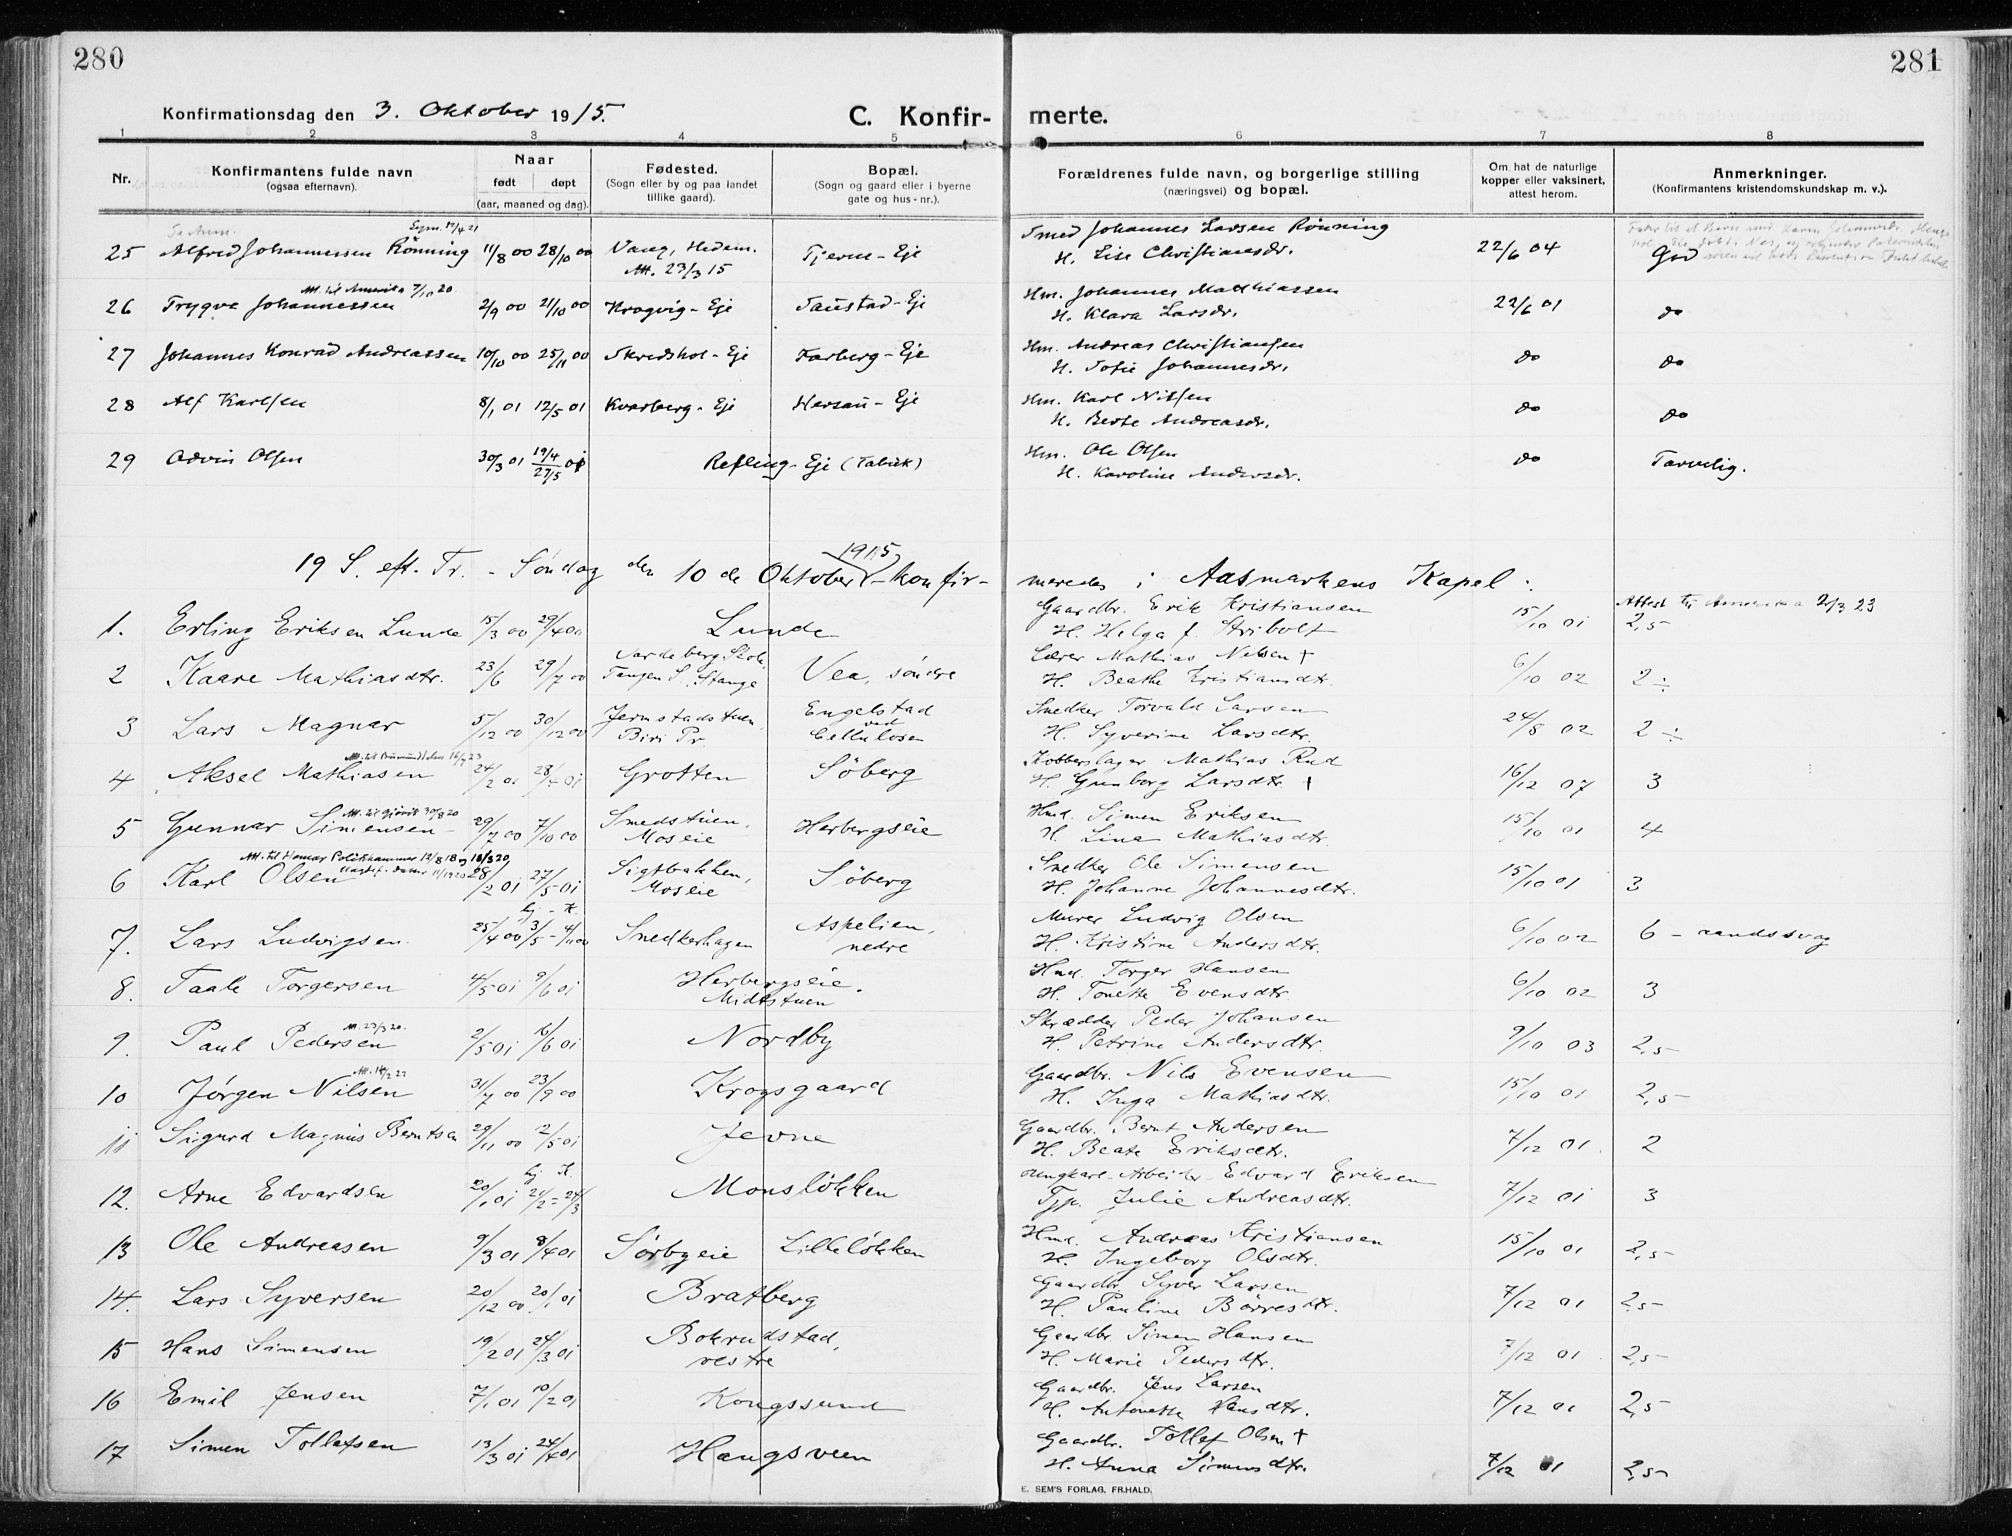 280
281
Konfirmationsdag den 3. Oktober 1915.
C. Konfir-
merte.
1 2 3 4 5 6 7 8
Nr.
Konfirmantens fulde navn
(ogsaa efternavn).
Naar
født døpt
(aar, maaned og dag).
Fødested.
(Sogn eller by og paa landet
tillike gaard).
Bopæl.
(Sogn og gaard eller i byerne
gate og hus-nr.).
Forældrenes fulde navn, og borgerlige stilling
(næringsvei) og bopæl.
Om hat de naturlige
kopper eller vaksinert,
attest herom.
Anmerkninger.
(Konfirmantens kristendomskundskap m. v.).
25 Alfred Johannessen Rönning 11/8 00 28/10 00 Vang, Hedem. Tjerne - Eje Smed Johannes Larsen Rönning 22/6 04 God
Att. 23/3 15 H. Lise Christiansdr.
Att. til Amerika 7/10 20
26 Trygve Johannessen 2/9 00 21/10 00 Krogvig - Eje Taustad - Eje Hm. Johannes Mathiassen 22/6 01 do
H. Klara Larsdr.
27 Johannes Konrad Andreassen 10/10 00 25/11 00 Skredshol - Eje Farberg - Eje Hm. Andreas Christiansen do do
H. Sofie Johannesdr.
28 Alf Karlsen 8/1 01 12/5 01 Kvarberg - Eje Hersau - Eje Hm. Karl Nilsen do do
H. Berte Andreasdr.
29 Odvin Olsen 30/3 01 19/4 27/5 01 Refling - Eje (Fabrik) Hm. Ole Olsen do Tarvelig.
H. Karoline Andersdr.
19 S. eft. Tr. - Söndag den 10 de Oktober 1915 - konfir- meredes i Aasmarkens Kapel:
1. Erling Eriksen Lunde 15/3 00 29/4 00 Lunde Gaardbr. Erik Kristiansen 15/10 01 Attest til Amerika 2/3 23
H. Helga f. Stribolt 2,5
2 Kaare Mathiasdtr. 23/6 29/7 00 Vardeberg Skole, Vea, söndre Lærer Mathias Nilsen † 6/10 02 2 ÷
Tangen S. Stange H. Beathe Kristiansdtr.
3 Lars Magnar 5/12 00 30/12 00 Jernstadstuen, Engelstad Snedker Torvald Larsen 24/8 02 2 ÷
Biri Pr. ved Cellulosen H. Syverine Larsdtr.
4 Aksel Mathiasen 24/2 01 28/4 01 Grotten Söberg Kobberslager Mathias Rud 16/12 07 3
H. Gunborg Larsdtr. †
Att. til Gjövik 30/8 20
5 Gunnar Simensen 29/7 00 7/10 00 Smedstuen, Herbergseie Hmd. Simen Eriksen 15/10 01 4
Moseie H. Line Mathiasdtr.
Att. til Hamar Politikammer 12/8 18 og 18/3 20
6 Karl Olsen 28/2 01 27/5 01 Sigtbakken, Söberg Snedker Ole Simensen 15/10 01 3
Moseie H. Johanne Johannesdtr.
hj. - K.
7. Lars Ludvigsen 25/4 00 3/5 - 4/11 00 Snedkerhagen Aspelien, Murer Ludvig Olsen 6/10 02 6 - aandssvag
nedre H. Kristine Andersdtr.
8. Taale Torgersen 4/5 01 9/6 01 Herbergseie. Hmd. Torger Hansen 6/10 02 3
Midtstuen H. Tonette Evensdtr.
Att. 23/3 20.
9. Paul Pedersen 2/5 01 16/6 01 Nordby Skrædder Peder Johansen 9/10 03 2,5
H. Petrine Andersdtr.
Att. 14/2 22
10 Jörgen Nilsen 31/7 00 23/9 00 Krogsgaard Gaardbr. Nils Evensen 15/10 01 2,5
H. Inga Mathiasdtr.
11 Sigurd Magnus Berntsen 29/11 00 12/5 01 Jevne Gaardbr. Bernt Andersen 7/12 01 2
H. Beate Eriksdtr.
hj. K.
12. Arne Edvardsen 20/1 01 21/2 = 24/3 Monslökken Ungkarl - Arbeider Edvard Eriksen 7/12 01 3
Tjp. Julie Andreasdtr.
13 Ole Andreasen 9/3 01 8/4 01 Sörbyeie Lillelökken Hmd. Andreas Kristiansen 15/10 01 2,5
H. Ingeborg Olsdtr.
14. Lars Syversen 20/12 00 20/1 01 Bratberg Gaardbr. Syver Larsen 7/12 01 2,5
H. Pauline Börresdtr.
15 Hans Simensen 19/2 01 24/3 01 Bokrudstad, Gaardbr. Simen Hansen 7/12 01 2,5
vestre H. Marie Pedersdtr.
16 Emil Jensen 7/1 01 10/2 01 Kongssund Gaardbr. Jens Larsen 7/12 01 2,5
H. Antonette Hansdtr.
17 Simen Tollefsen 13/3 01 24/4 01 Haugsveen Gaardbr. Tollef Olsen † 7/12 01 2,5
H. Anna Simensdtr.
E. SEM'S FORLAG, FR.HALD.